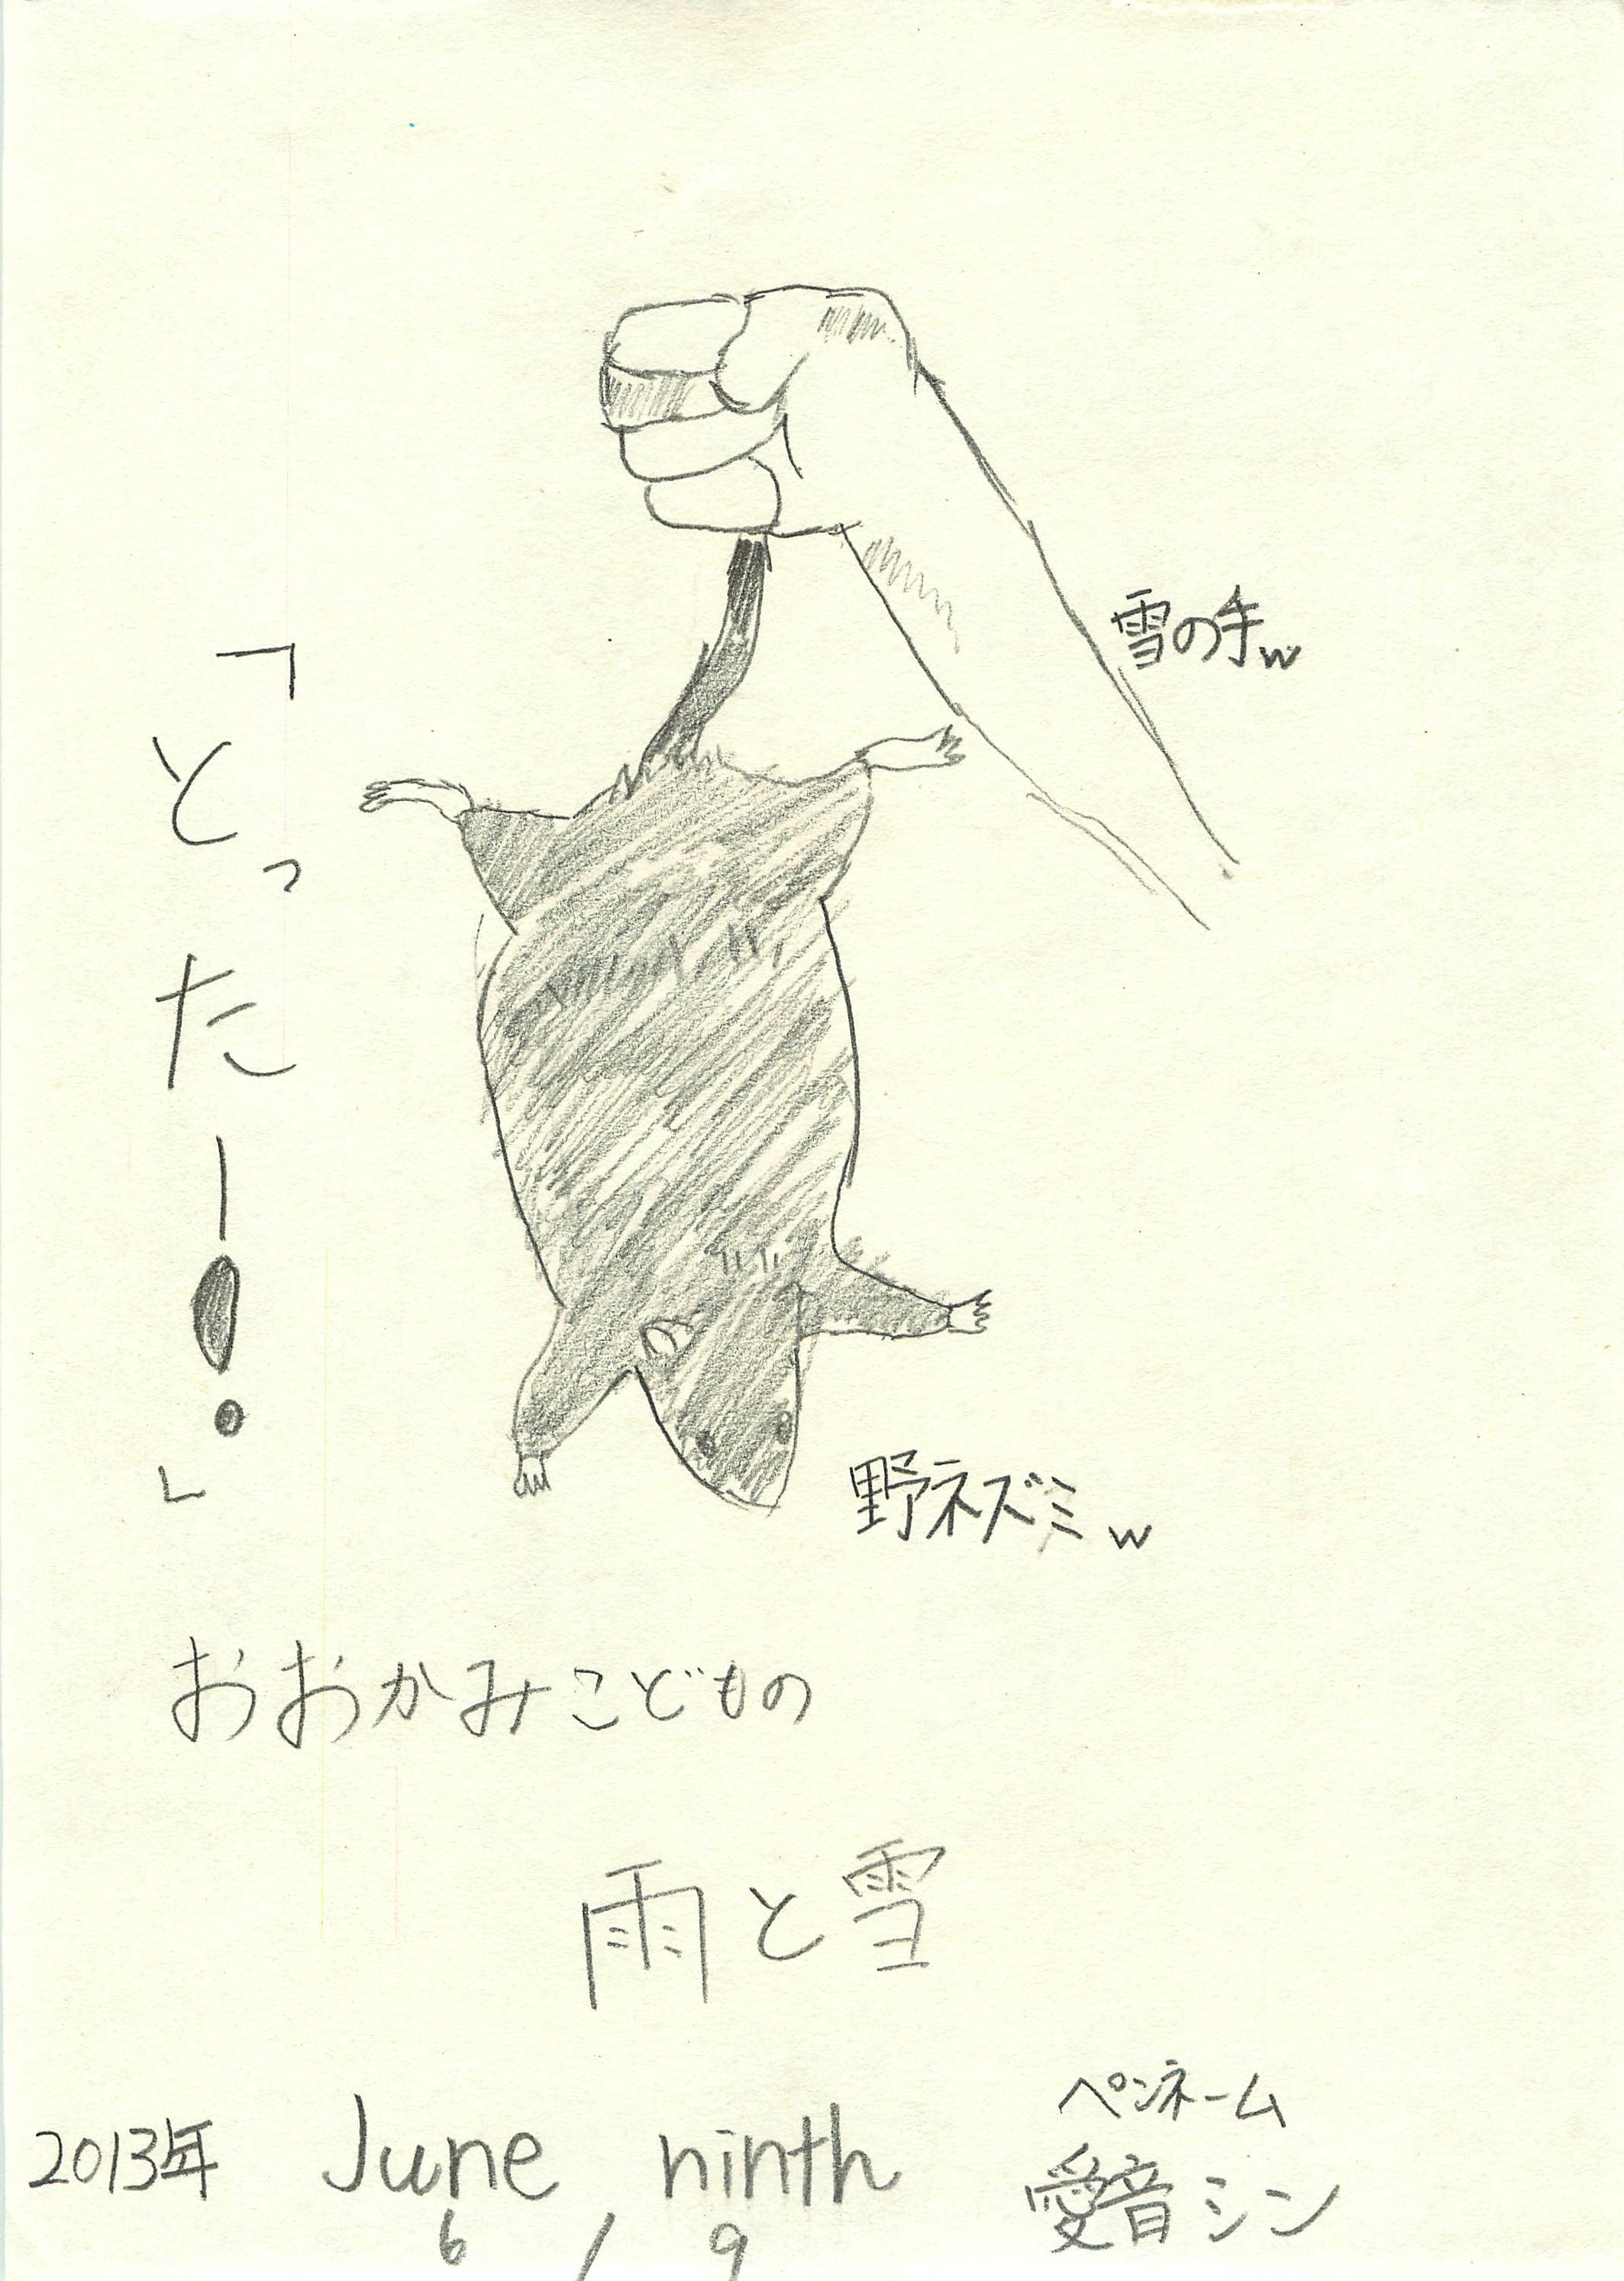 「とったー!」
雪の手w
野ネズミw
おおかみこどもの
雨と雪
2013年 June, ninth
6/9
ペンネーム
愛音シン